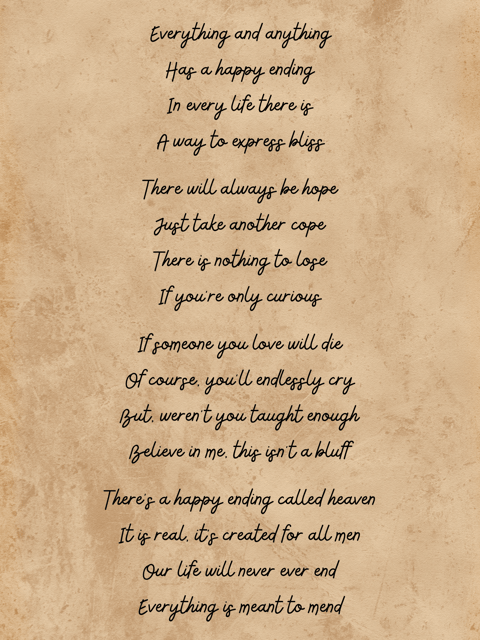 Everything and anything
Has a happy ending
In every life there is
A way to express bliss
There will always be hope
Just take another cope
There is nothing to lose
If you're only curious
If someone you love will die
Of course, you'll endlessly cry
But, weren't you taught enough
Believe in me, this isn't a bluff
There's a happy ending called heaven
It is real, it's created for all men
Our life will never ever end
Everything is meant to mend